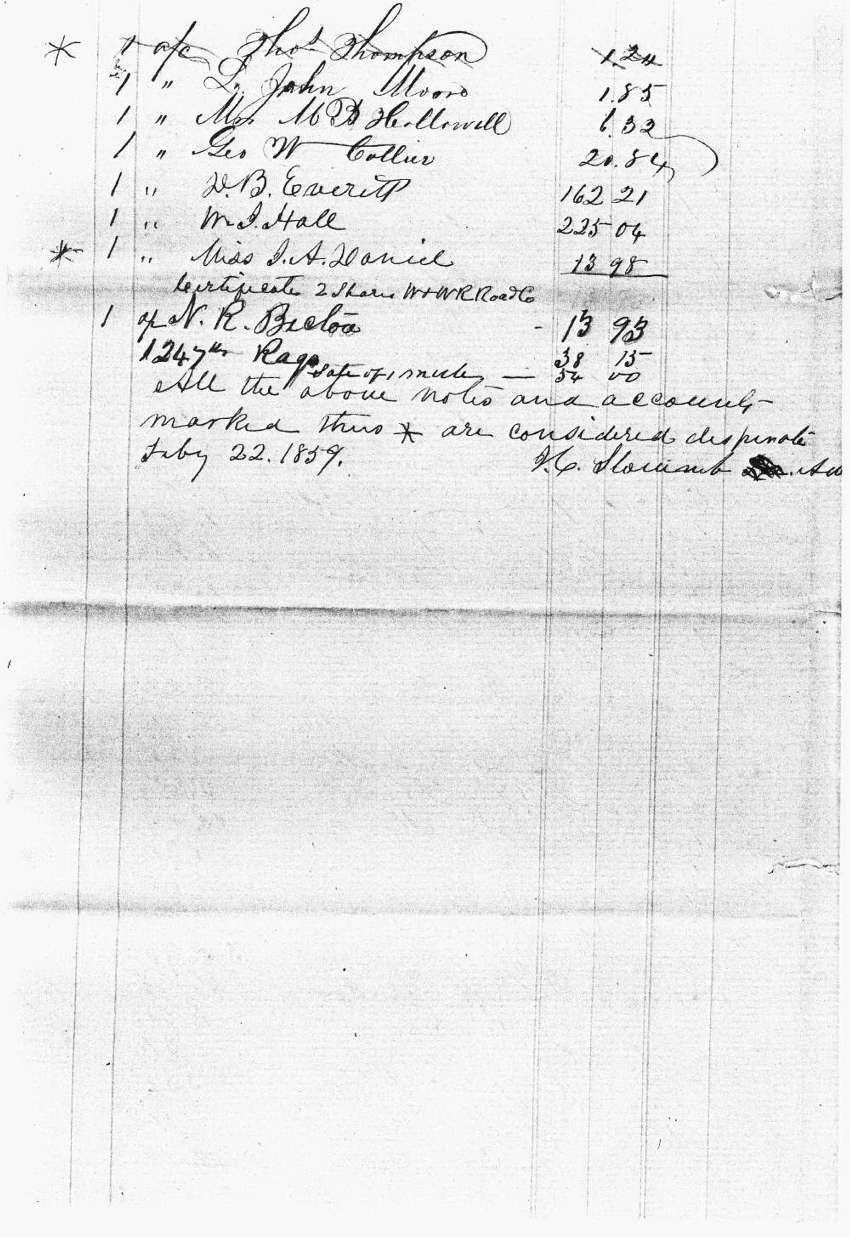 * 1 a/c Thos Thompson 1.24
1 " L. John Moore 1.85
1 " Mrs M B Hollowell 6.32
1 " Geo W Collier 20.84
1 " D. B. Everitt 162 21
1 " W. J. Hall 225 04
* 1 " Miss J. A. Daniel 13 98
Certificate 2 Shares W & W R Road Co
1 of N. R. - 13 93
1247 lbs Rags 38 15
Sale of 1 mule — 54 00
All the above notes and accounts
marked thus * are considered desperate
Feby 22. 1859. H. C. Slocumb